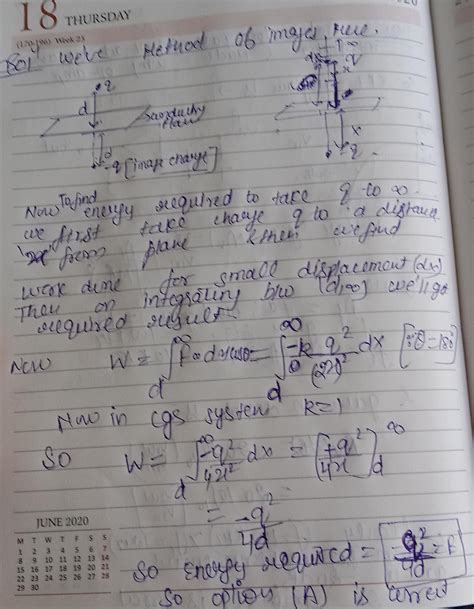 18 THURSDAY
(170-196) Week 25
Sol We've Method of images here.
q
d
conducting
plane
-q [image charge]
x
-q
Now To find energy required to take q to ∞
we first take charge q to a distance
"x" from plane & then we find
work done for small displacement (dx)
Then on integrating b/w (d, ∞) we'll go
required result.
Now W = ∫ F dx cosθ = ∫ -k q² / (2x)² dx [∵ θ = 180
Now in cgs system k=1
So W = ∫ -q² / 4x² dx = [+q² / 4x] ∞ d
= -q² / 4d
So energy required =
So option (A) is correct
JUNE 2020
M T W T F S S
1 2 3 4 5 6 7
8 9 10 11 12 13 14
15 16 17 18 19 20 21
22 23 24 25 26 27 28
29 30